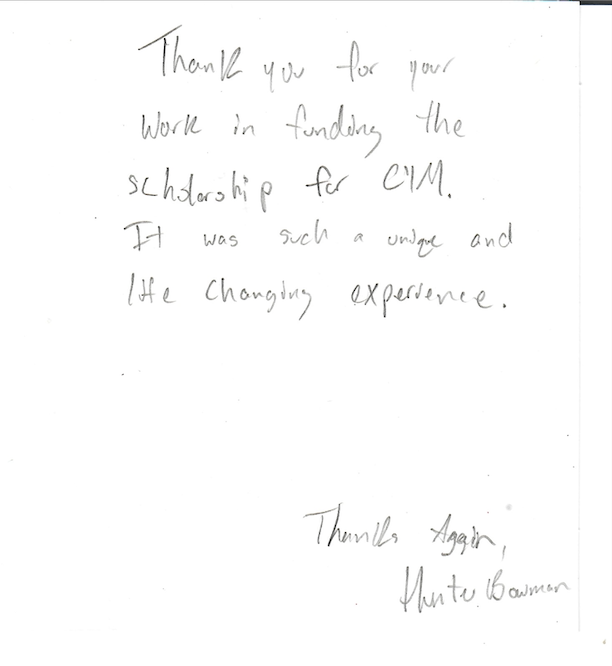 Thank you for your
work in funding the
scholarship for CYM.
It was such a unique and
life changing experience.
Thanks Again,
Hunter Bowman